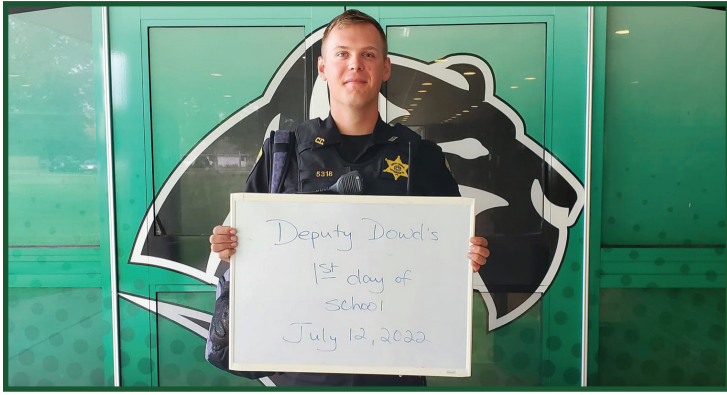 5318
Deputy Dowd's
1st day of
school
July 12, 2022